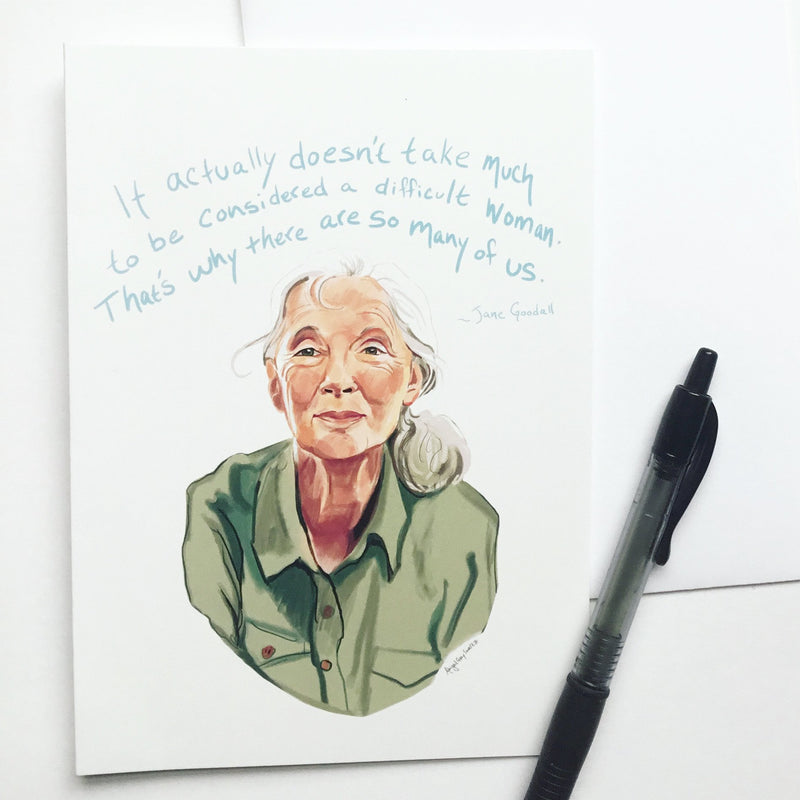 It actually doesn't take much
to be considered a difficult Woman.
That's why there are so many of us.
~ Jane Goodall